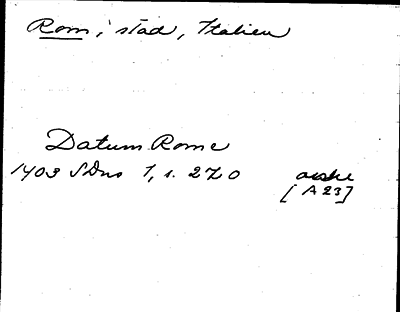 Rom, stad, Italien
Datum Rome
1403 SDns 1, s. 270
[A 23]